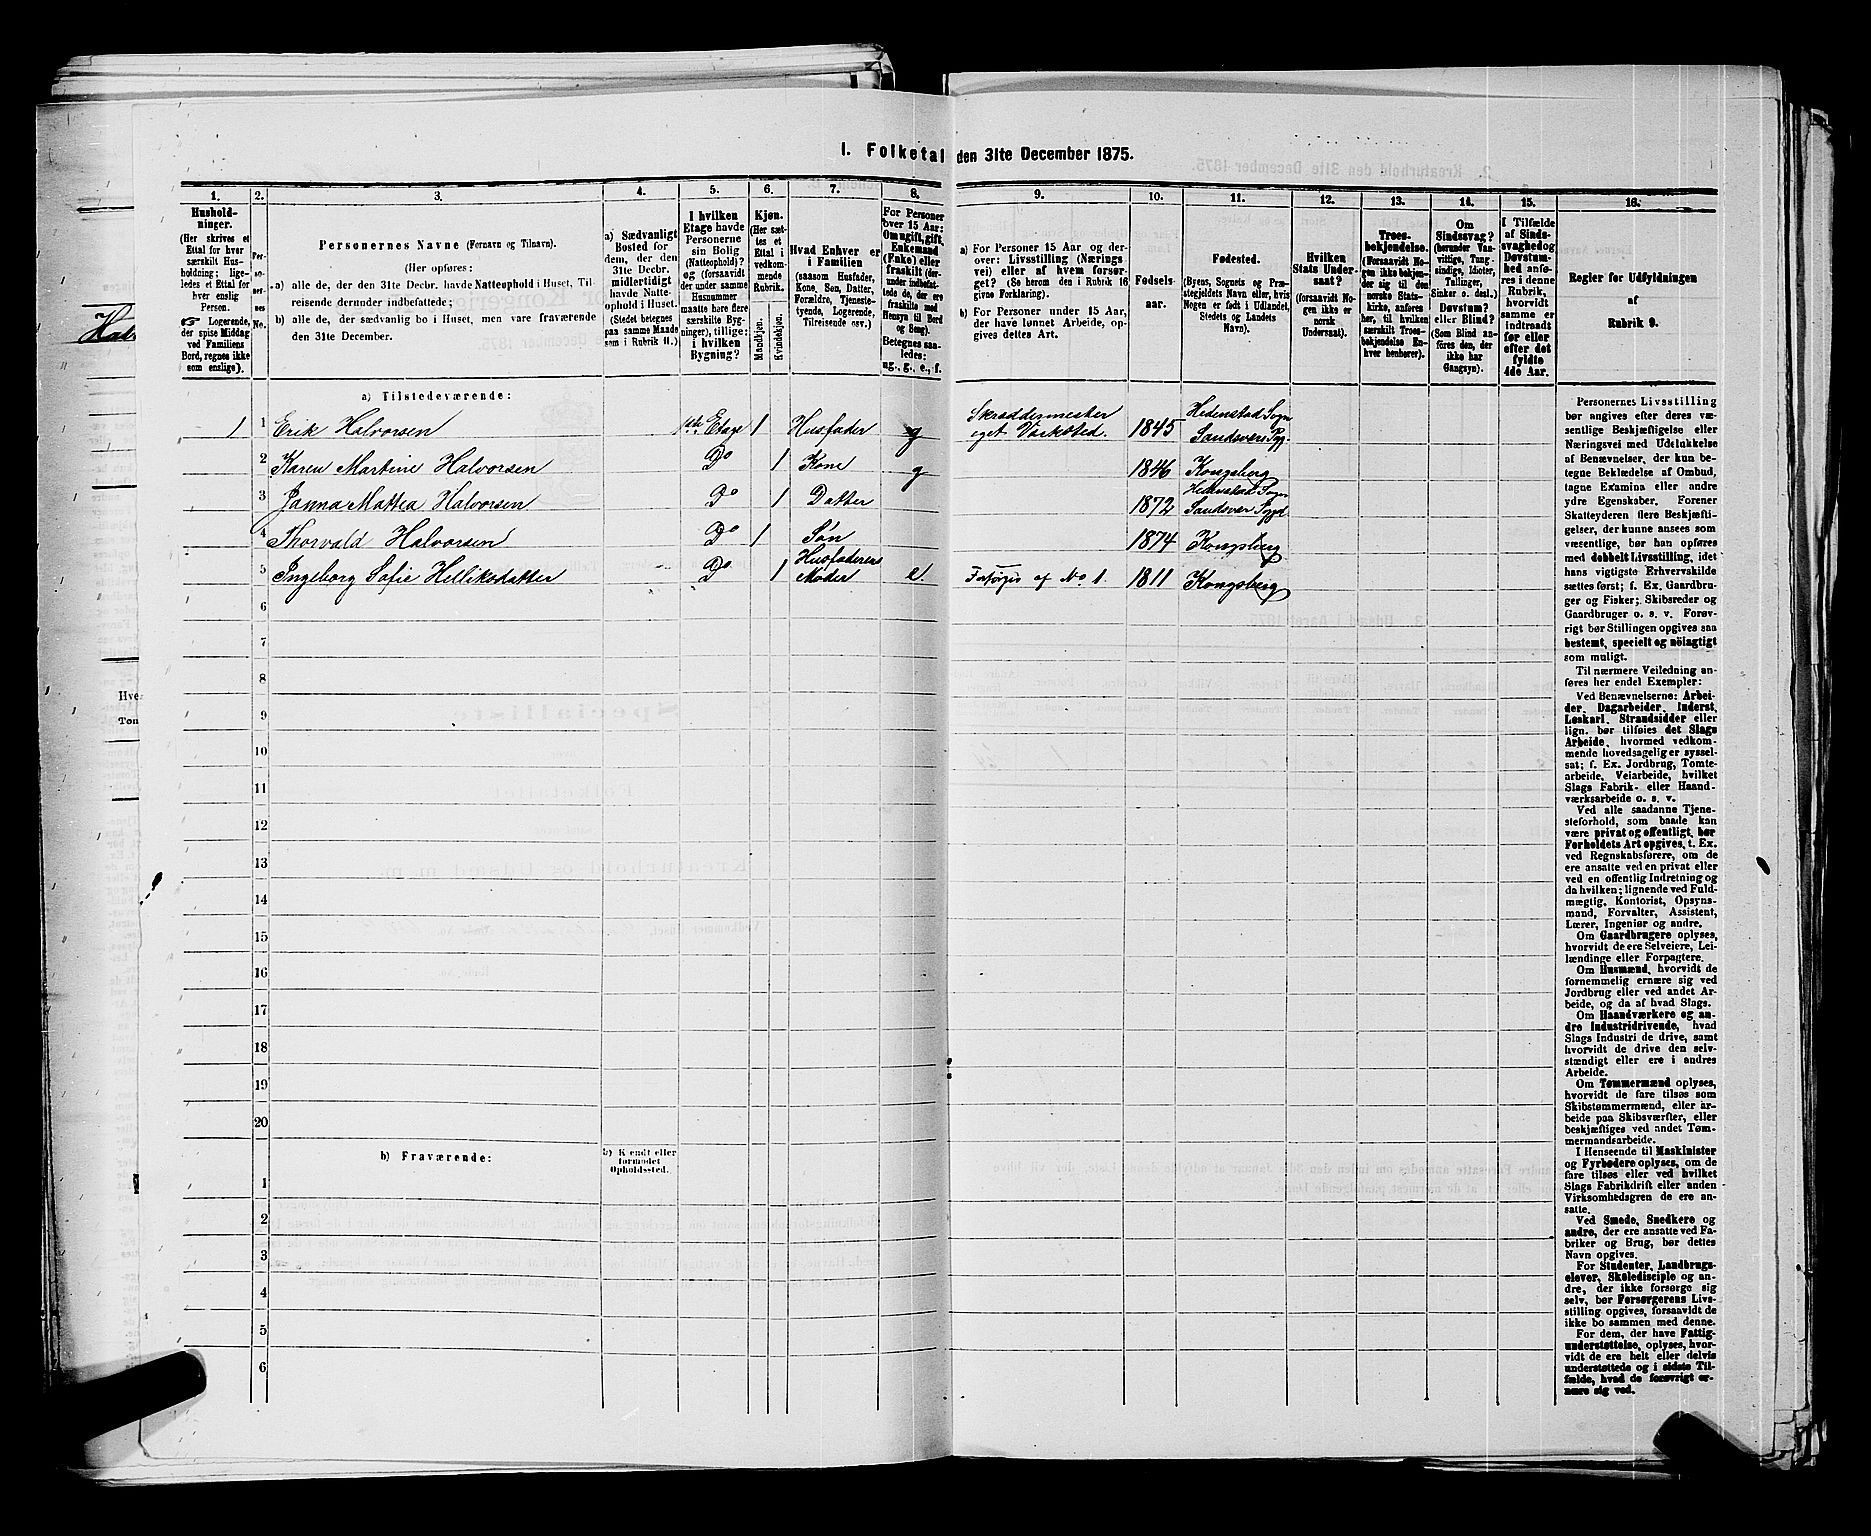 1. Folketal den 31te December 1875.
1. 2. 3. 4. 5. 6. 7. 8. 9. 10. 11. 12. 13. 14. 15. 16.
Hushold-
ninger.
(Her skrives et
Ettal for hver
særskilt Hus-
holdning; lige-
ledes et Ettal for
hver enslig
Person.
☞ Logerende,
der spise Middag
ved Familiens
Bord, regnes ikke
som enslige).
Per-
so-
ner-
nes
No.
Personernes Navne (Fornavn og Tilnavn).
(Her opføres:
a) alle de, der den 31te Decbr. havde Natteophold i Huset, Til-
reisende derunder indbefattede;
b) alle de, der sædvanlig bo i Huset, men vare fraværende
den 31te December.
a) Sædvanligt
Bosted for
dem, der den
31te Decbr.
midlertidigt
havde Natte-
ophold i Huset.
(Stedet betegnes
paa samme Maade
som i Rubrik 11.)
I hvilken
Etage havde
Personerne
sin Bolig
(Natteophold)?
og (forsaavidt
der under samme
Husnummer
maatte høre flere
særskilte Byg-
ninger), tillige:
i hvilken
Bygning?
Kjøn.
(Her sæt-
tes et
Ettal i
vedkom-
mende
Rubrik.
Mandkjøn.
Kvindekjøn.
Hvad Enhver er
i Familien
(saasom Husfader,
Kone, Søn, Datter,
Forældre, Tjeneste-
tyende, Logerende,
Tilreisende osv.)
For Personer
over 15 Aar:
Om ugift, gift,
Enkemand
(Enke) eller
fraskilt (der-
under indbefat-
tede de, der ere
fraskilte med
Hensyn til Bord
og Seng).
Betegnes saa-
ledes:
ug., g., e., f.
a) For Personer 15 Aar og der-
over: Livsstilling (Nærings-
vei) eller af hvem forsør-
get? (Se herom den i Rubrik 16
givne Forklaring).
b) For Personer under 15 Aar,
der have lønnet Arbeide, op-
gives dettes Art.
Fødsels-
aar.
Fødested.
(Byens, Sognets og Præ-
stegjeldets Navn eller, hvis
Nogen er født i Udlandet,
Stedets og Landets
Navn).
Hvilken
Stats Under-
saat?
(forsaavidt No-
gen ikke er
norsk
Undersaat).
Troes-
bekjendelse.
(Forsaavidt No-
gen ikke bekjen-
der sig til den
norske Stats-
kirke, anføres
her, til hvilken
særskilt Troes-
bekjendelse En-
hver henhører).
Om
Sindssvag?
(herunder Van-
vittige, Tung-
sindige, Idioter,
Tullinger,
Sinker o. desl.)
Døvstum?
eller Blind?
(Som Blind an-
føres den, der
ikke har
Gangsyn).
I Tilfælde
af Sinds-
svaghed og
Døvstum-
hed anfø-
res i denne
Rubrik,
hvorvidt
samme er
indtraadt
før eller
efter det
fyldte
4de Aar.
Regler for Udfyldningen
af
Rubrik 9.
a) Tilstedeværende:
1 1 Erik Halvorsen 1ste Etage 1 Husfader g Skræddermester eget Værksted. 1845 Hedenstad Sogn Sandsvers Pgj.
2 Karen Martine Halvorsen Do 1 Kone g 1846 Kongsberg
3 Janna Mattea Halvorsen Do 1 Datter 1872 Hedenstad Sogn Sandsver Pgd.
4 Thorvald Halvorsen Do 1 Søn 1874 Kongsberg
5 Ingeborg Sofie Helliksdatter Do 1 Husfaderens Moder e. af No 1. 1811 Kongsberg
6
7
8
9
10
11
12
13
14
15
16
17
18
19
20
b) Fraværende:
b) Kjendt eller
formodet
Opholdssted.
1
2
3
4
5
6
Personernes Livsstilling
bør angives efter deres væ-
sentlige Beskjæftigelse eller
Næringsvei med Udelukkelse
af Benævnelser, der kun be-
tegne Beklædelse af Ombud,
tagne Examina eller andre
ydre Egenskaber. Forener
Skatteyderen flere Beskjæfti-
gelser, der kunne ansees som
væsentlige, bør han opføres
med dobbelt Livsstilling, idet
hans vigtigste Erhvervskilde
sættes først; f. Ex. Gaardbru-
ger og Fisker; Skibsreder og
Gaardbruger o. s. v. Forøv-
rigt bør Stillingen opgives saa
bestemt, specielt og nöiagtigt
som muligt.
Til nærmere Veiledning an-
føres her endel Exempler:
Ved Benævnelserne: Arbei-
der, Dagarbeider, Inderst,
Løskarl, Strandsidder eller
lign. bør tilføies det Slags
Arbeide, hvormed vedkom-
mende hovedsagelig er syssel-
sat; f. Ex. Jordbrug, Tomte-
arbeide, Veiarbeide, hvilket
Slags Fabrik- eller Haand-
værksarbeide o. s. v.
Ved alle saadanne Tjene-
steforhold, som baade kan
være privat og offentligt, bør
Forholdets Art opgives, f. Ex.
ved Regnskabsførere, om de
ere ansatte ved en privat eller
ved en offentlig Indretning og
da hvilken; lignende ved Fuld-
mægtig, Kontorist, Opsyns-
mand, Forvalter, Assistent,
Lærer, Ingeniør og andre.
Om Gaardbrugere oplyses,
hvorvidt de ere Selveiere, Lei-
lændinge eller Forpagtere.
Om Husmænd, hvorvidt de
fornemmelig ernære sig ved
Jordbrug eller ved andet Ar-
beide, og da af hvad Slags.
Om Haandværkere og an-
dre Industridrivende, hvad
Slags Industri de drive, samt
hvorvidt de drive den selv-
stændigt eller ere i andres
Arbeide.
Om Tømmermænd oplyses,
hvorvidt de fare tilsøs som
Skibstømmermænd, eller ar-
beide paa Skibsværfter, eller
beskjæftiges ved andet Tøm-
mermandsarbeide.
I Henseende til Maskinister
og Fyrbødere oplyses, om de
fare tilsøs eller ved hvilket
Slags Fabrikdrift eller anden
Virksomhedsgren de ere an-
satte.
Ved Smede, Snedkere og
andre, der ere ansatte ved Fa-
briker og Brug, bør dettes
Navn opgives.
For Studenter, Landbrugs-
elever, Skoledisciple og an-
dre, der ikke forsørge sig
selv, bør Forsørgerens Livs-
stilling opgives, forsaavidt de
ikke bo sammen med denne.
For dem, der have Fattig-
understøttelse, oplyses, hvor-
vidt de ere helt eller delvis
understøttede og i sidste Til-
fælde, hvad de forøvrigt er-
nære sig ved.